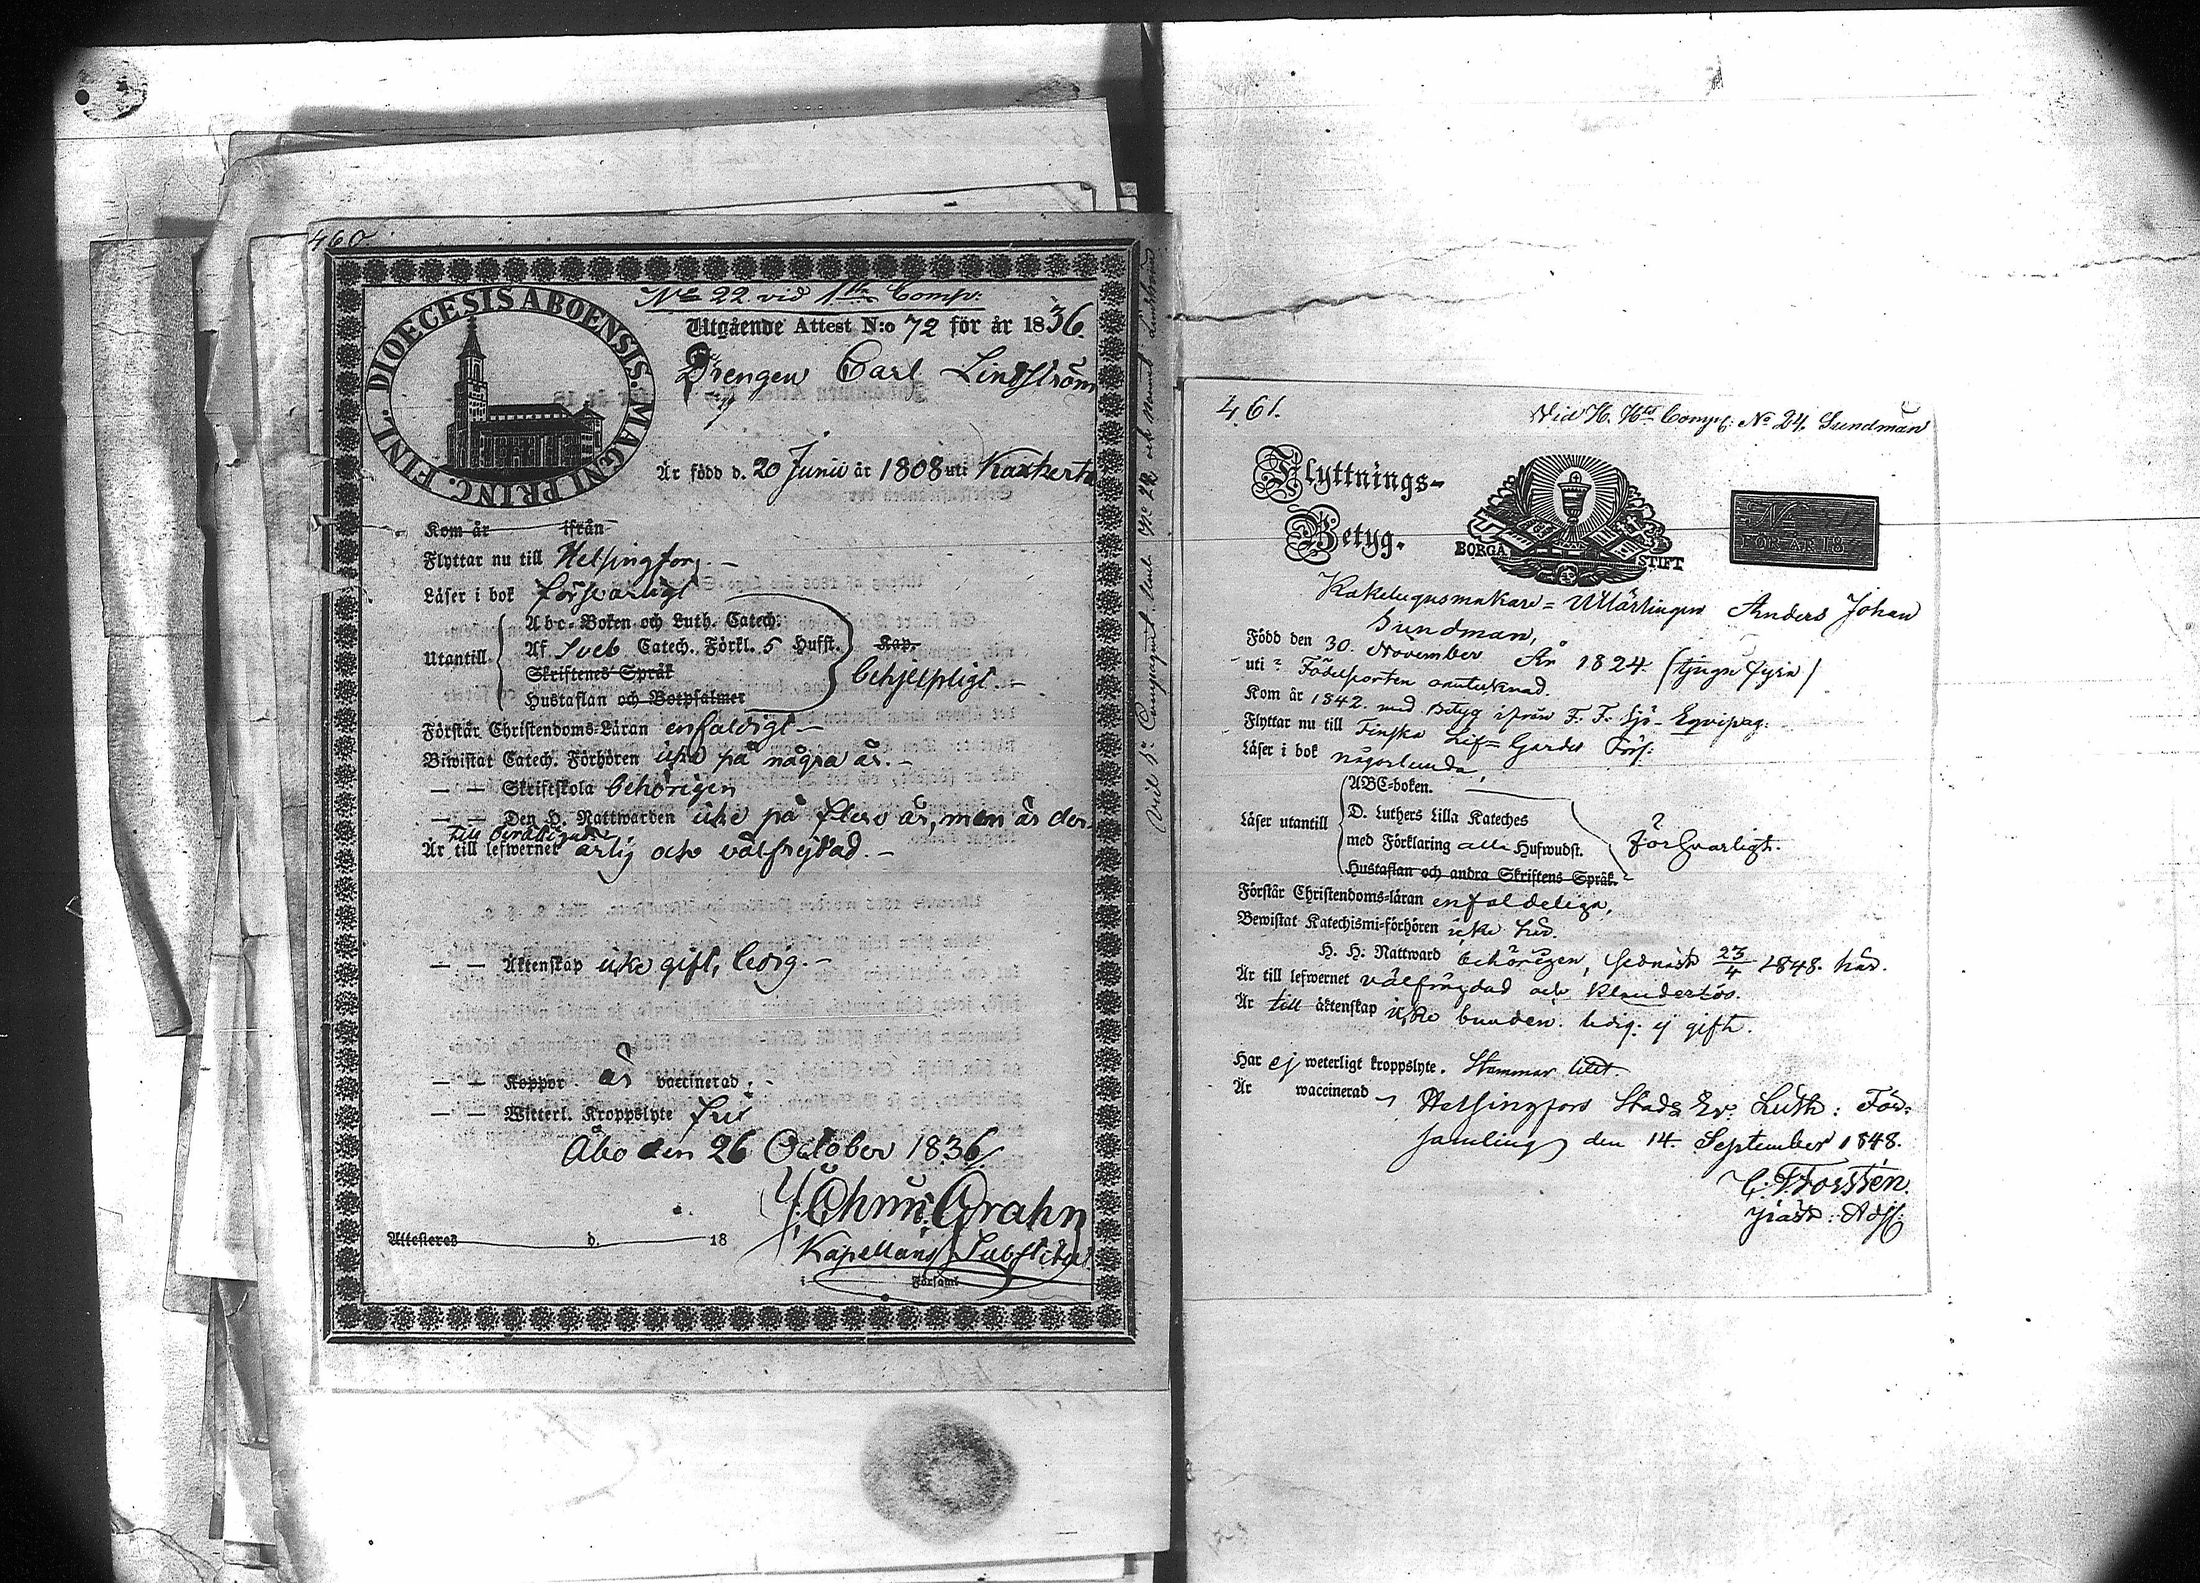 460.
DIOECESIS ABOENSIS. MAGNI PRINC. FINL.
No 22 vid 1sta Comp:
Utgående Attest N:o 72 för år 1836.
Drengen Carl Lindström
Är född d. 20 Junii år 1808 uti Kaxkerta
Kom år ifrån
Flyttar nu till Helsingfors.
Läser i bok försvarligt
Utantill
Abc-Boken och Luth. Catech.
Af Sveb Catech. Förkl. 5 Hufst.
Skriftenes Språk
Hustaflan och Botpsalmer
Kap.
behjelpligt
Förstår Christendoms-Läran enfaldigt
Biwistat Catech. Förhören icke på några år.
— — Skriftskola behörigen
— — Den H. Nattwarden icke på flere år, men är der-
till berättigad
Är till lefwernet ärlig och välfrejdad.
— — Äktenskap icke gift, ledig.
— — Koppor är vaccinerad.
— — Witterl. Kroppslyte fri
Åbo den 26 October 1836
Grahn
Kapellans Substitut
Attesteras d. 18
i Församl
Vid 1a Compagniet under No 22 och namnet Lindström
461.
Vid Comp: No 24. Sundman
Flyttnings-
Betyg.
BORGÅ STIFT
No
FÖR ÅR 18
Kakelugnsmakare- Utlärlingen Anders Johan
Sundman,
Född den 30. November År 1824. (tjugu fyra)
uti Födelseorten antecknad.
Kom år 1842. med Betyg ifrån F. F. Sjö-Eqvipag:
Flyttar nu till Finska Lif-Gardes Förs:
Läser i bok någorlunda,
Läser utantill
ABC-boken.
D. Luthers Lilla Kateches
med Förklaring alla Hufwudst.
Hustaflan och andra Skriftens Språk.
försvarligt.
Förstår Christendoms-läran enfaldeliga,
Bewistat Katechismi-förhören icke här.
H. H. Nattward behörigen, sednast 23/4 1848. här.
Är till lefwernet välfrägdad och klanderlös.
Är till äktenskap icke bunden. ledig: ej gift.
Har ej weterligt kroppslyte. Stammar litet.
Är waccinerad
Helsingfors Stads Ev. Luth: För-
samling den 14. September 1848.
C. Forstén.